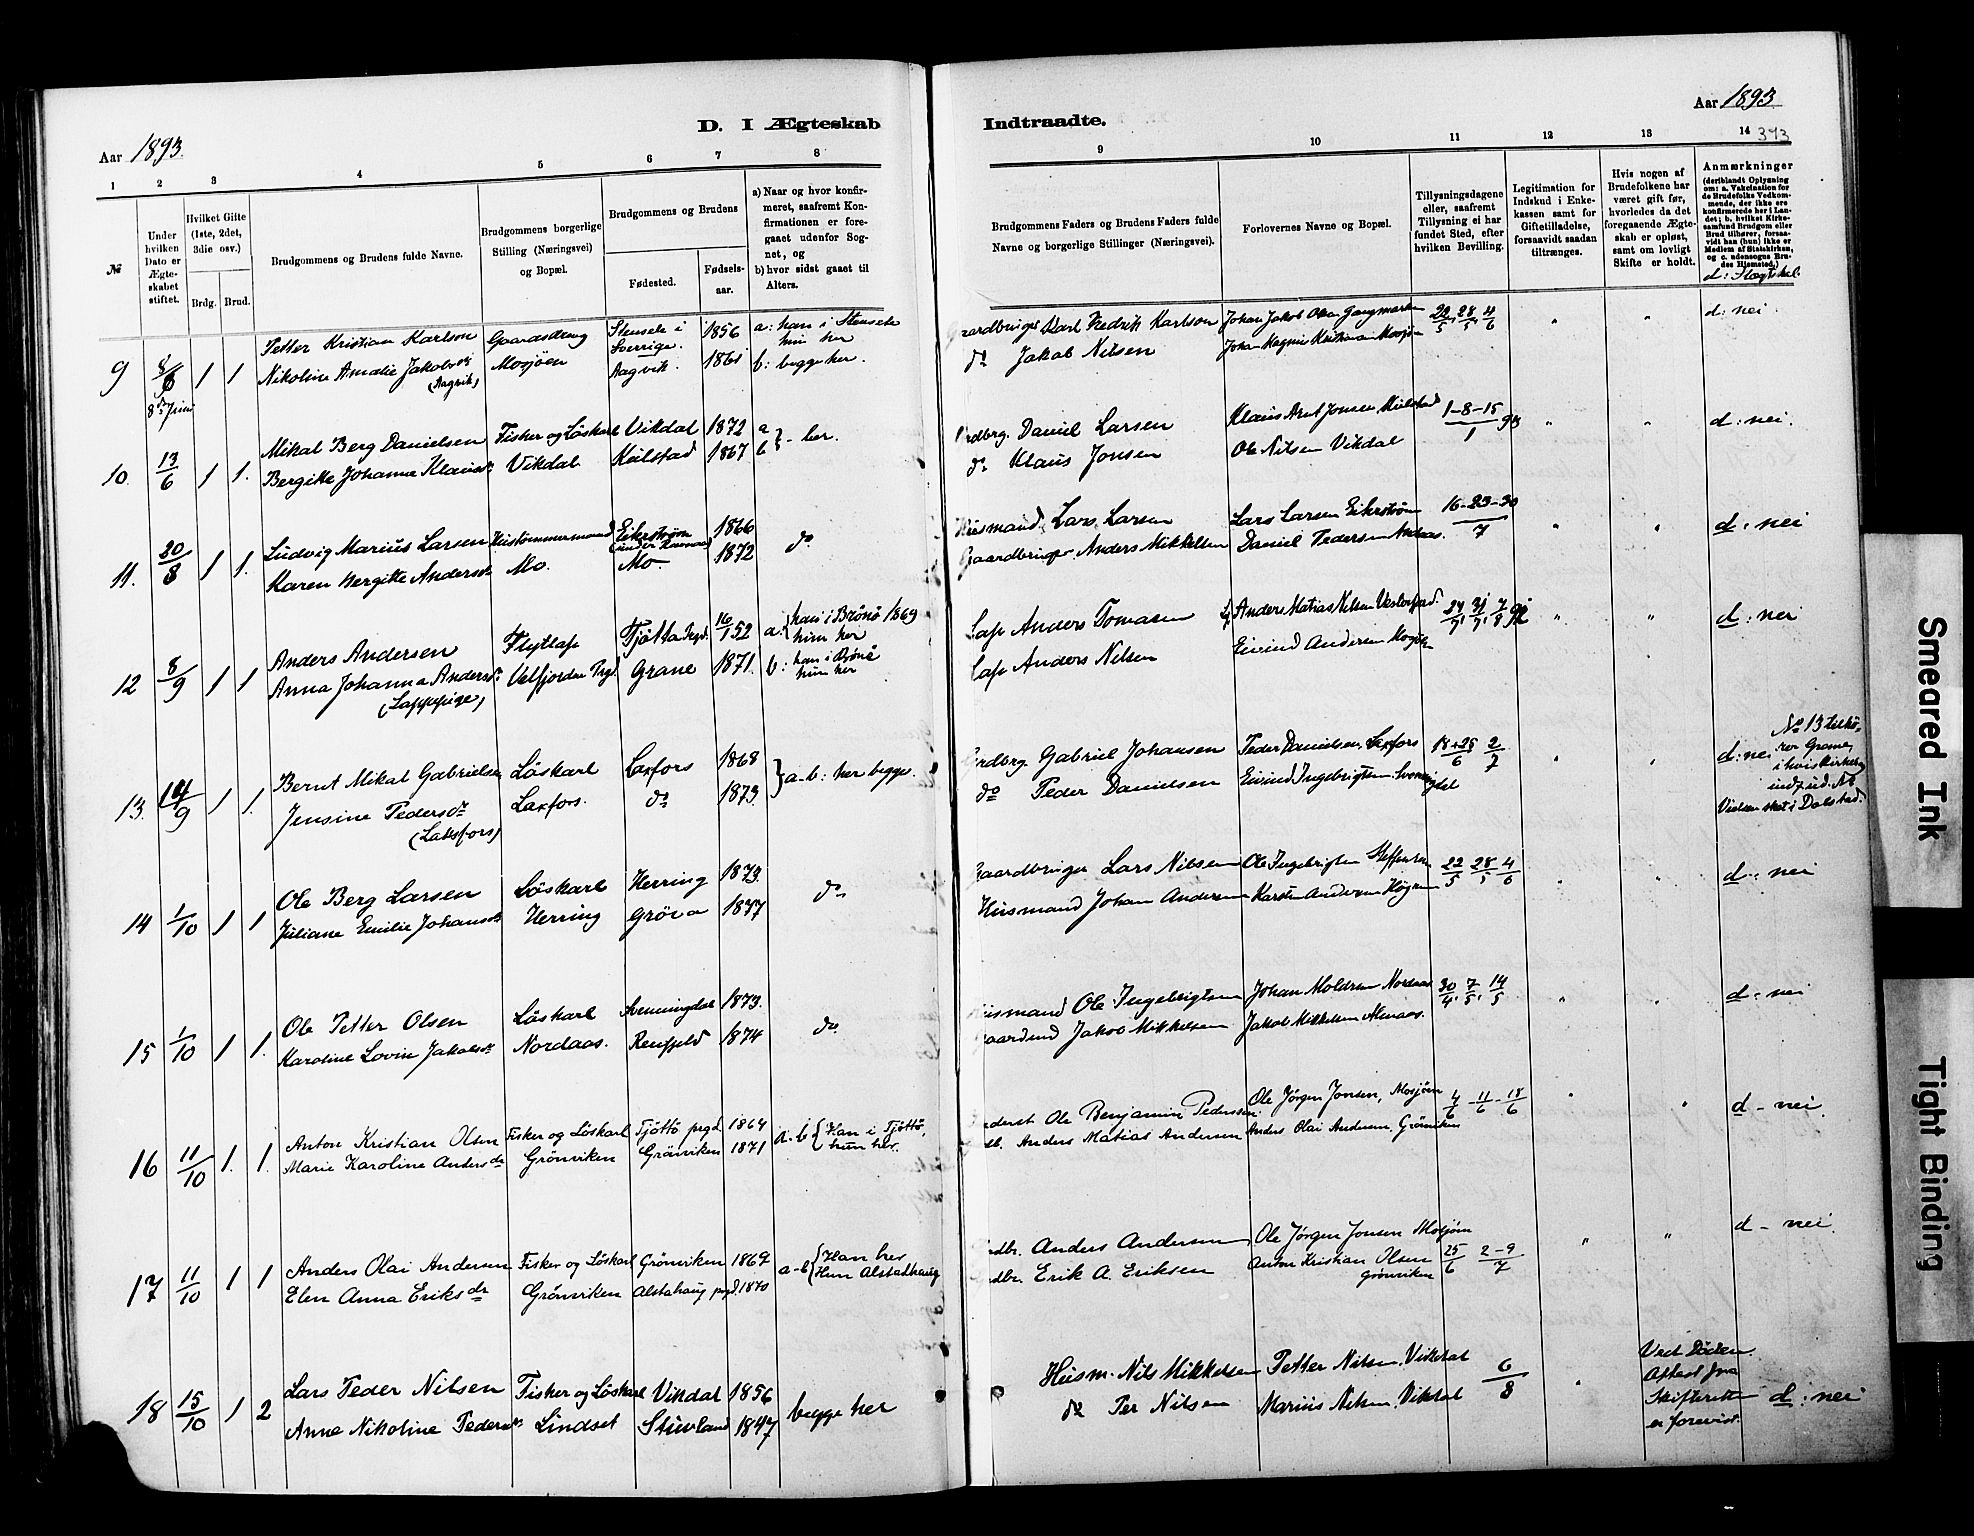 D. I Ægteskab
Aar 1893.
1 2 3 4 5 6 7 8
№
Under hvilken Dato er Ægteskabet stiftet.
Hvilket Gifte (1ste, 2det, 3die osv.)
Brdg. Brud.
Brudgommens og Brudens fulde Navne.
Brudgommens borgerlige Stilling (Næringsvei) og Bopæl.
Brudgommens og Brudens
Fødested. Fødselsaar.
a) Naar og hvor konfirmeret, saafremt Konfirmationen er foregaaet udenfor Sognet, og
b) hvor sidst gaaet til Alters.
9 8/6 1 1 Petter Kristian Karlson Gaardsdreng Stensele i Sverrige. 1856 a: han i Stensele hun her
8de Juni Nikoline Amalie Jakobsdr (Aagvik) Mosjøen Aagvik. 1861 b: begge her.
10. 13/6 1 1. Mikal Berg Danielsen Fisker og Löskarl Vikdal 1872 a
Bergitte Johanna Klausdr Vikdal Kulstad 1867 b } - her.
11. 20/8 1 1. Ludvig Marius Larsen Hustømmermand Eikrstrøm 1866 do
Karen Bergitte Andersdr Mo. Mo. 1872
12 8/9 1 1 Anders Andersen Flytlap Tjøtta Prgd. 16/1 52 a: han i Brönö 1869 hun her
Anna Johanna Andersdr (Lappepige) Velfjorden Prgd. Grane 1871. b: han i Brönö hun her
13. 14/9 1 1. Bernt Mikal Gabrielsen Löskarl Laxfors 1868 } a-b: her begge.
Jensine Pedersdr (Laksfors) Laxfors. do 1873.
14 1/10 1 1 Ole Berg Larsen Löskarl Herring 1873. do
Juliane Emilie Johansdr Herring Gröva 1877
15 1/10 1 1. Ole Petter Olsen Löskarl Svenningdal 1873. do
Karoline Lovise Jakobsdr Nordaas. Renfjeld 1874
16 11/10 1. 1. Anton Kristian Olsen Fisker og Löskarl Tjöttö prgd. 1864 a-b { Han i Tjöttö,
Marie Karoline Andersdr Grönviken Grönviken 1871 hun her.
17 11/10 1 1 Anders Olai Andersen Fisker og Löskarl Grönviken 1869 a-b { Han her
Elen Anna Eriksdr Grönviken Alstahaug prgd. 1870 Hun Alstadhaug
18 15/10 1 2 Lars Peder Nilsen Fisker og Löskarl Vikdal 1856 begge her
Anne Nikoline Pedersdr Lindset Stuvland 1847
Indtraadte.
Aar 1893.
393
9 10 11 12 13 14
Brudgommens Faders og Brudens Faders fulde Navne og borgerlige Stillinger (Næringsvei).
Forlovernes Navne og Bopæl.
Tillysningsdagene eller, saafremt Tillysning ei har fundet Sted, efter hvilken Bevilling.
Legitimation for Indskud i Enkekassen samt for Giftetilladelse, forsaavidt saadan tiltrænges.
Hvis nogen af Brudefolkene har været gift før, hvorledes da det foregaaende Ægteskab er opløst, samt om lovligt Skifte er holdt.
Anmærkninger (deriblandt Oplysning om: a. Vakcination for de Brudefolks Vedkommende, der ikke ere konfirmerede her i Landet; b. hvilket Kirkesamfund Brudgom eller Brud tilhører, forsaavidt han (hun) ikke er Medlem af Statskirken, og c. udensogns Brudes Hjemsted.)
d: Slægtskab.
Gaardbruger Karl Fredrik Karlson Johan Jakob Olsen 22/5, 28/5, 4/6 " " d: nei.
do Jakob Nilsen Johan Magnus Kristiansen Mosjøen
Grdbrg. Daniel Larsen Klaus Arnt Jonsen Kulstad 1-8-15/1 93 " " d: nei.
do Klaus Jonsen Ole Nilsen Vikdal
Husmand Lars Larsen Lars Larsen Eikrstrøm 16-23-30/7 " " d: nei
Gaardbruger Anders Mikkelsen Daniel Pedersen
Lap Anders Tomasen Lap Anders Matias Nilsen 24/7, 31/7, 7/8 " " d: nei
Lap Anders Nilsen Eivind Andersen
Grdbrg. Gabriel Johansen Peder Danielsen, Laxfors 18+25/6 2/7 " " d: nei
do Peder Danielsen Eivind Ingebrigtsen Svenningdal
No 13 tilhörer Grane, i hvis kirkebog indf.
Vielsen sket i Dolstad.
Gaardbruger Lars Nilsen Ole Ingebrigtsen 22/5 28/5 4/6 " " d: nei
Husmand Johan Andersen Karsten Andersen
Husmand Ole Ingebrigtsen Johan Moldrem Nordaas 30/4, 7/5, 14/5 " " d: nei
Jakob Mikkelsen Jakob Mikkelsen
Ole Benjamin Pedersen Ole Jørgen Jonsen, Mosjöen 4/6 - 11/6 - 18/6 " " d - nei.
Anders Matias Andersen Anders Olai Andersen, Grönviken
Anders Andersen Ole Jørgen Jonsen Mosjöen 25/6 2-9/7 " " d - nei.
Erik A. Eriksen Anton Kristian Olsen Grönviken
Husm. Nils Mikkelsen Petter Nilsen, Vikdal 6/8 " d: nei
do Per Nilsen Marius Nilsen, Vikdal
Ved Döden.
Attest fra
Skifteretten
er forevist.
Smeared Ink
Tight Binding